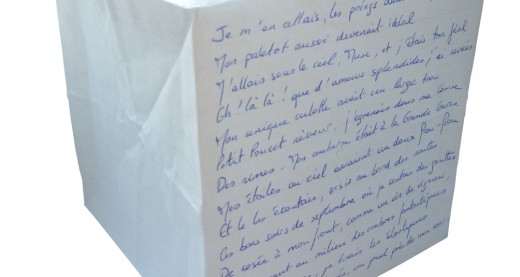 Je m'en allais, les poings
Mon paletot aussi devenait idéal
J'allais sous le ciel, Muse, et j'étais ton féal
Oh ! là là ! que d'amours splendides j'ai rêvées
Mon unique culotte avait un large trou
Petit Poucet rêveur, j'égrenais dans ma course
Des rimes. Mon auberge était à la Grande Ourse
Mes étoiles au ciel avaient un doux frou frou
Et je les écoutais, assis au bord des routes
Ces bons soirs de septembre où je sentais des gouttes
De rosée à mon front, comme un vin de vigueur,
au milieu des ombres fantastiques
je tirais les élastiques
un pied près de mon